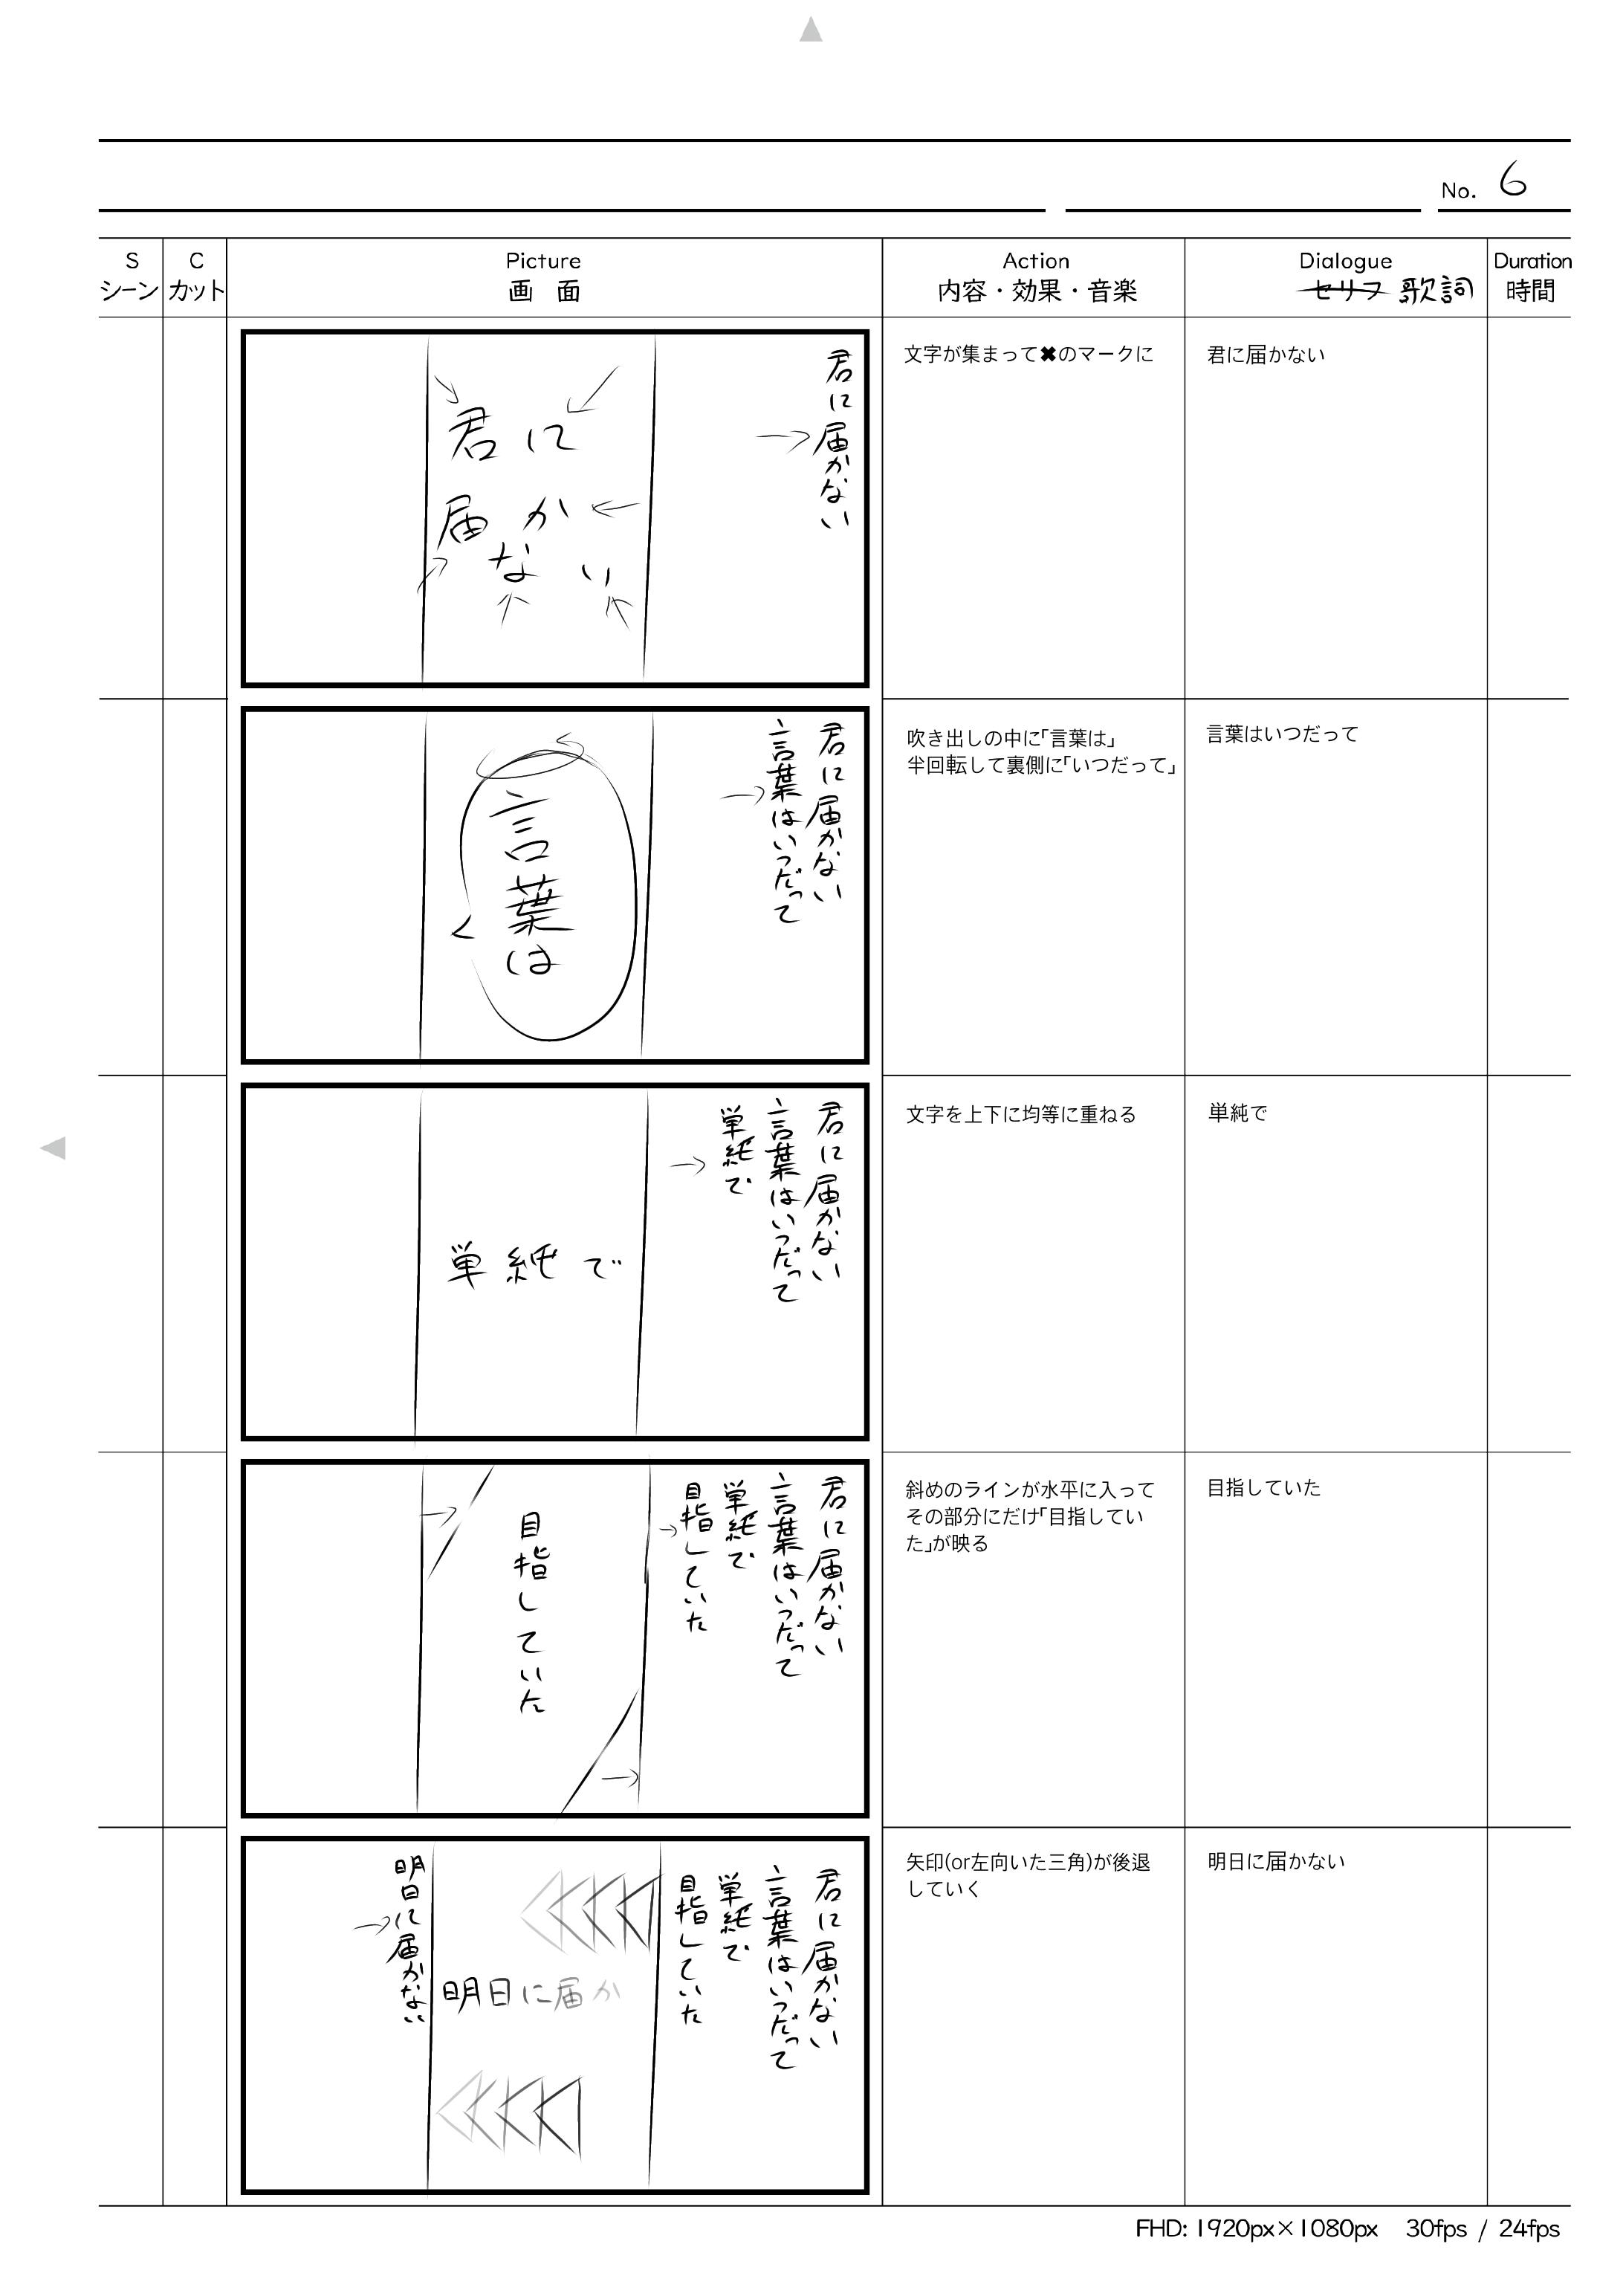 No. 6
S
シーン
C
カット
Picture
画 面
Action
内容・効果・音楽
Dialogue
セリフ 歌詞
Duration
時間
君に
届か
ない
君に届かない
文字が集まって✖のマークに
君に届かない
言葉は
君に届かない
言葉はいつだって
吹き出しの中に「言葉は」
半回転して裏側に「いつだって」
言葉はいつだって
単純で
君に届かない
言葉はいつだって
単純で
文字を上下に均等に重ねる
単純で
目指していた
君に届かない
言葉はいつだって
単純で
目指していた
斜めのラインが水平に入って
その部分にだけ「目指してい
た」が映る
目指していた
明日に届か
君に届かない
言葉はいつだって
単純で
目指していた
明日に届かない
矢印(or左向いた三角)が後退
していく
明日に届かない
FHD: 1920px×1080px 30fps / 24fps